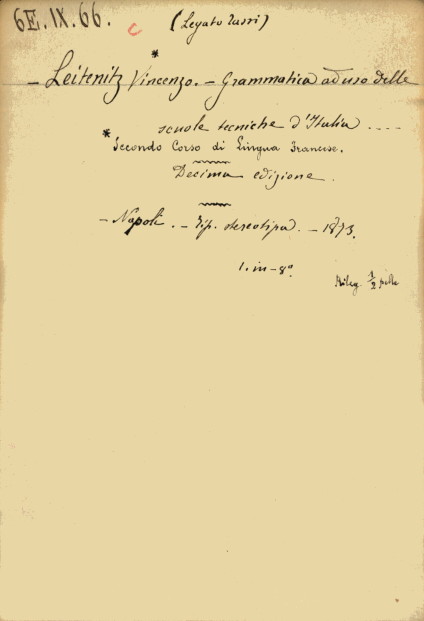 6E.IX.66. c (Legato Turri)
*
— Leitenitz Vincenzo. — Grammatica ad uso delle
scuole tecniche d'Italia ....
* Secondo Corso di Lingua Francese.
Decima edizione.
— Napoli. — Tip. stereotipa. — 1873.
1. in-8°.
Rileg. 1/2 pelle